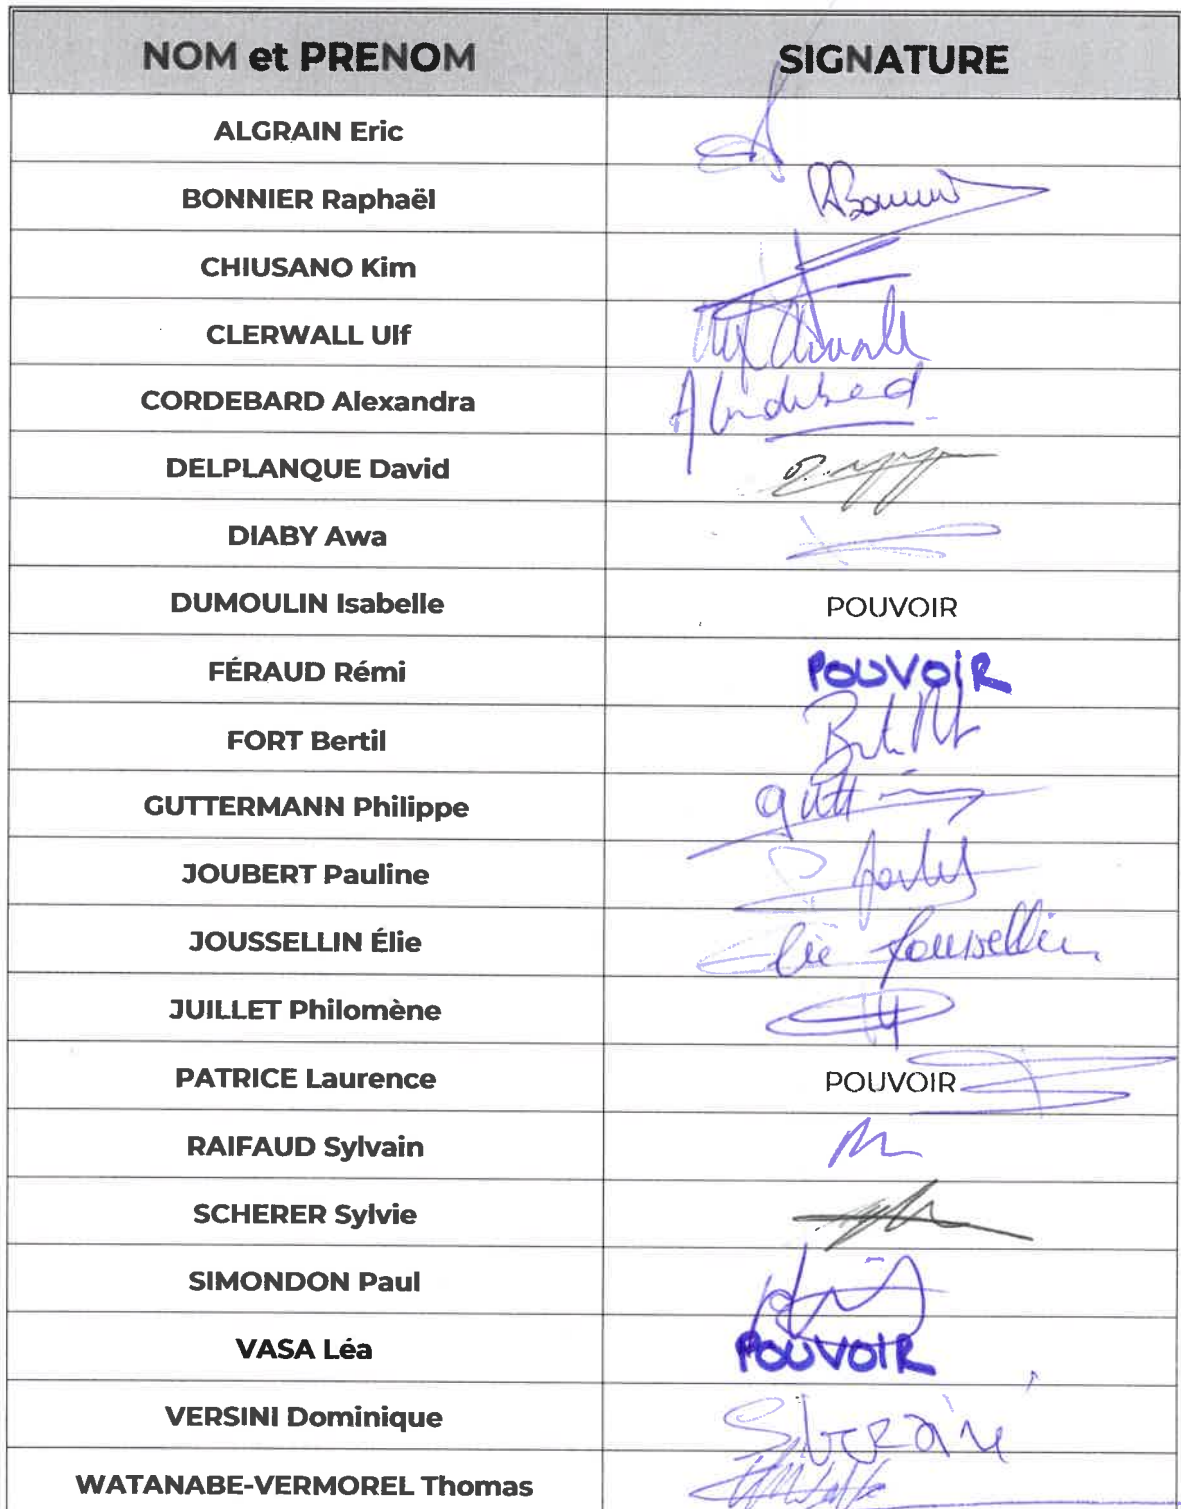 NOM et PRENOM SIGNATURE
ALGRAIN Eric
BONNIER Raphaël RBonnier
CHIUSANO Kim
CLERWALL Ulf
CORDEBARD Alexandra A Cordebard
DELPLANQUE David
DIABY Awa
DUMOULIN Isabelle POUVOIR
FÉRAUD Rémi POUVOIR
FORT Bertil
GUTTERMANN Philippe
JOUBERT Pauline
JOUSSELLIN Élie Élie Joussellin
JUILLET Philomène
PATRICE Laurence POUVOIR
RAIFAUD Sylvain
SCHERER Sylvie
SIMONDON Paul
VASA Léa POUVOIR
VERSINI Dominique
WATANABE-VERMOREL Thomas